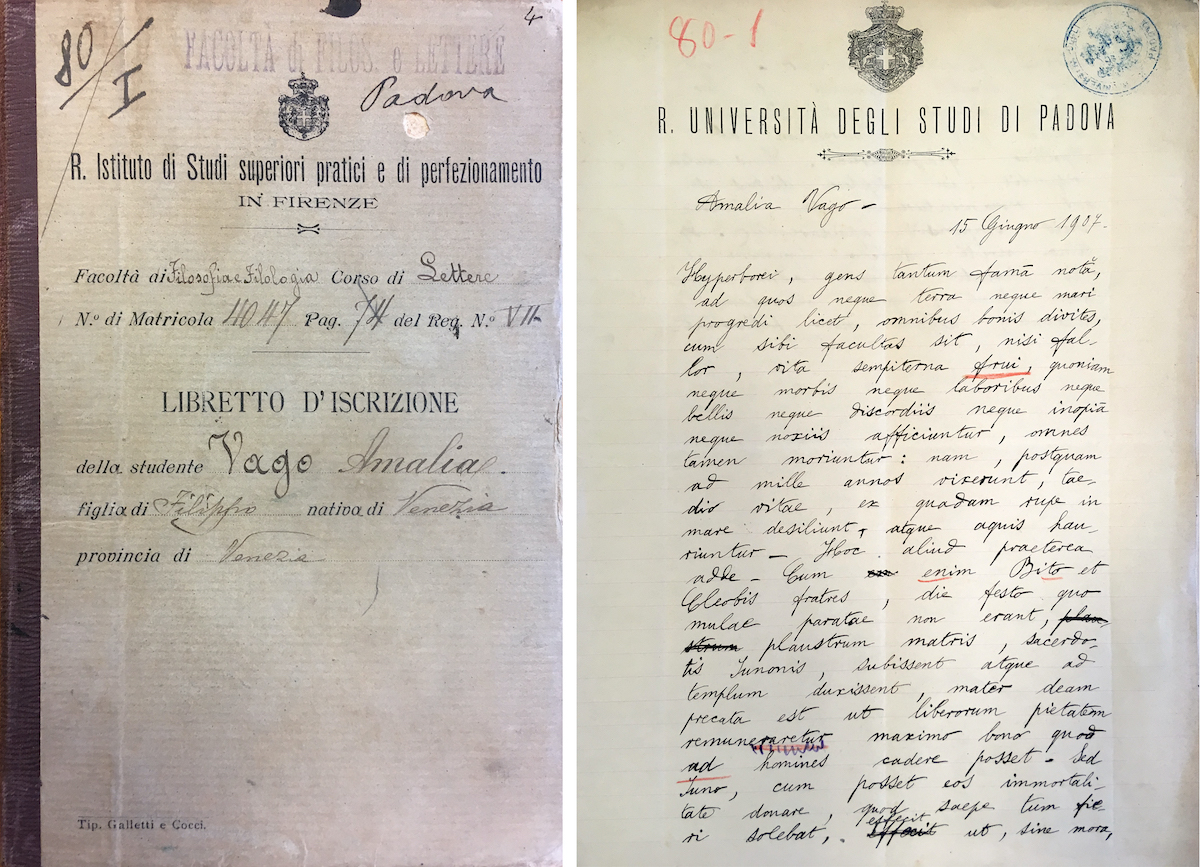 4
80/I
FACOLTÀ di FILOS. e LETTERE
Padova
R. Istituto di Studi superiori pratici e di perfezionamento
IN FIRENZE
Facoltà di Filosofia e Filologia Corso di Lettere
N.º di Matricola 4047 Pag. 74 del Reg. N.º VII
LIBRETTO D'ISCRIZIONE
della studente Vago Amalia.
figlia di Filippo nativa di Venezia
provincia di Venezia
Tip. Galletti e Cocci.
80-1
R. UNIVERSITÀ DEGLI STUDI DI PADOVA
Amalia Vago -
15 Giugno 1907.
Hyperborei, gens tantum famā notā,
ad quos neque terra neque mari
progredi licet, omnibus bonis divites,
cum sibi facultas sit, nisi fal-
lor, vita sempiterna frui, quoniam
neque morbis neque laboribus neque
bellis neque discordiis neque inopiā
neque noxiis afficiuntur, omnes
tamen moriuntur: nam, postquam
ad mille annos vixerunt, tae-
dio vitae, ex quadam rupe in
mare desiliunt, atque aquis hau-
riuntur - Hoc aliud praeterea
adde - Cum enim Bito et
Cleobis fratres, die festo quo
mulae paratae non erant, plau-
strum plaustrum matris, sacerdo-
tis Junonis, subissent atque ad
templum duxissent, mater deam
precata est ut liberorum pietatem
remuneraretur maximo bono quod
ad homines cadere posset - Sed
Juno, cum posset eos immortali-
tate donare, quod saepe tum fie-
ri solebat, effecit ut, sine mora,